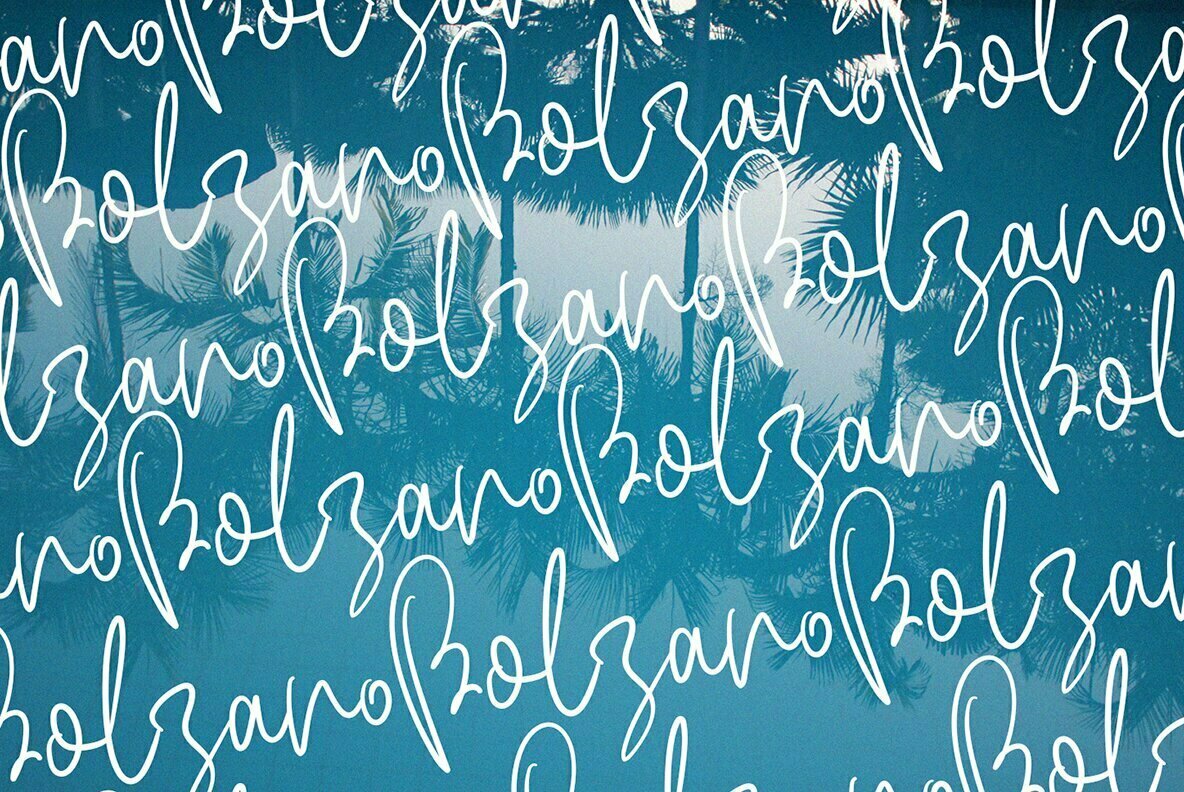 ano Bolzano
Bolzano Bolzano Bolza
lzano Bolzano Bolzano
no Bolzano Bolzano Bol
Bolzano Bolzano Bolzan
Bolzano Bolz